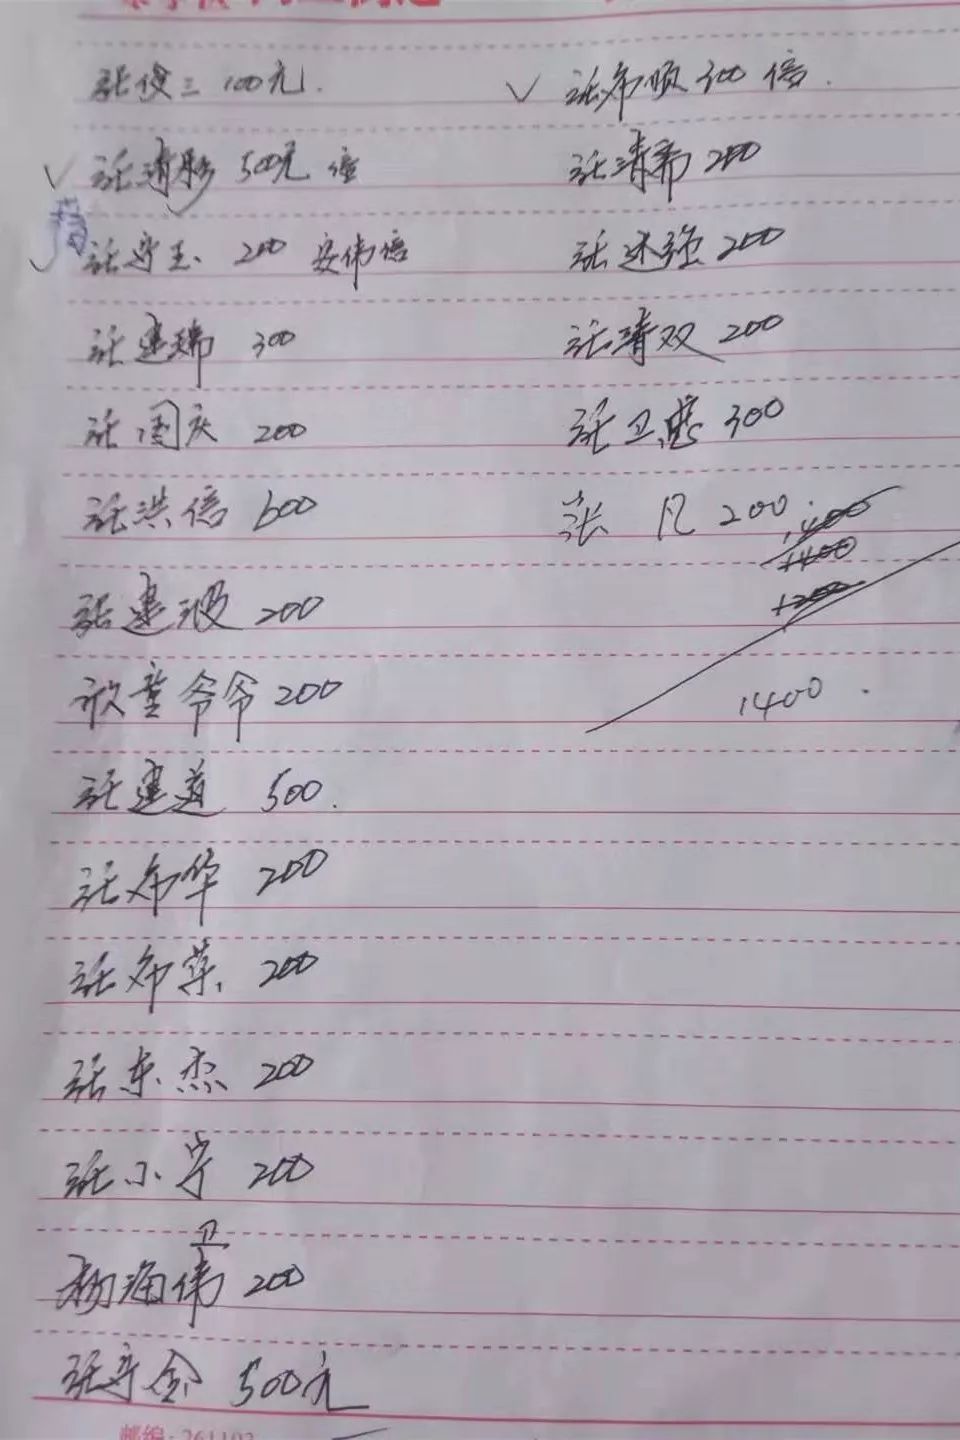 张俊三 100元.
张清彬 500元 信
张守玉 200 安伟信
张建瑞 300
张国庆 200
张洪信 600
张建波 200
欣童爷爷 200
张建道 500.
张希华 200
张希荣 200
张东杰 200
张小宁 200
卫
杨海伟 200
张守金 500元
张希顺 300 信.
张清希 200
张述强 200
张清双 200
张卫忠 300
张凡 200
1400
1400.
邮编:261102